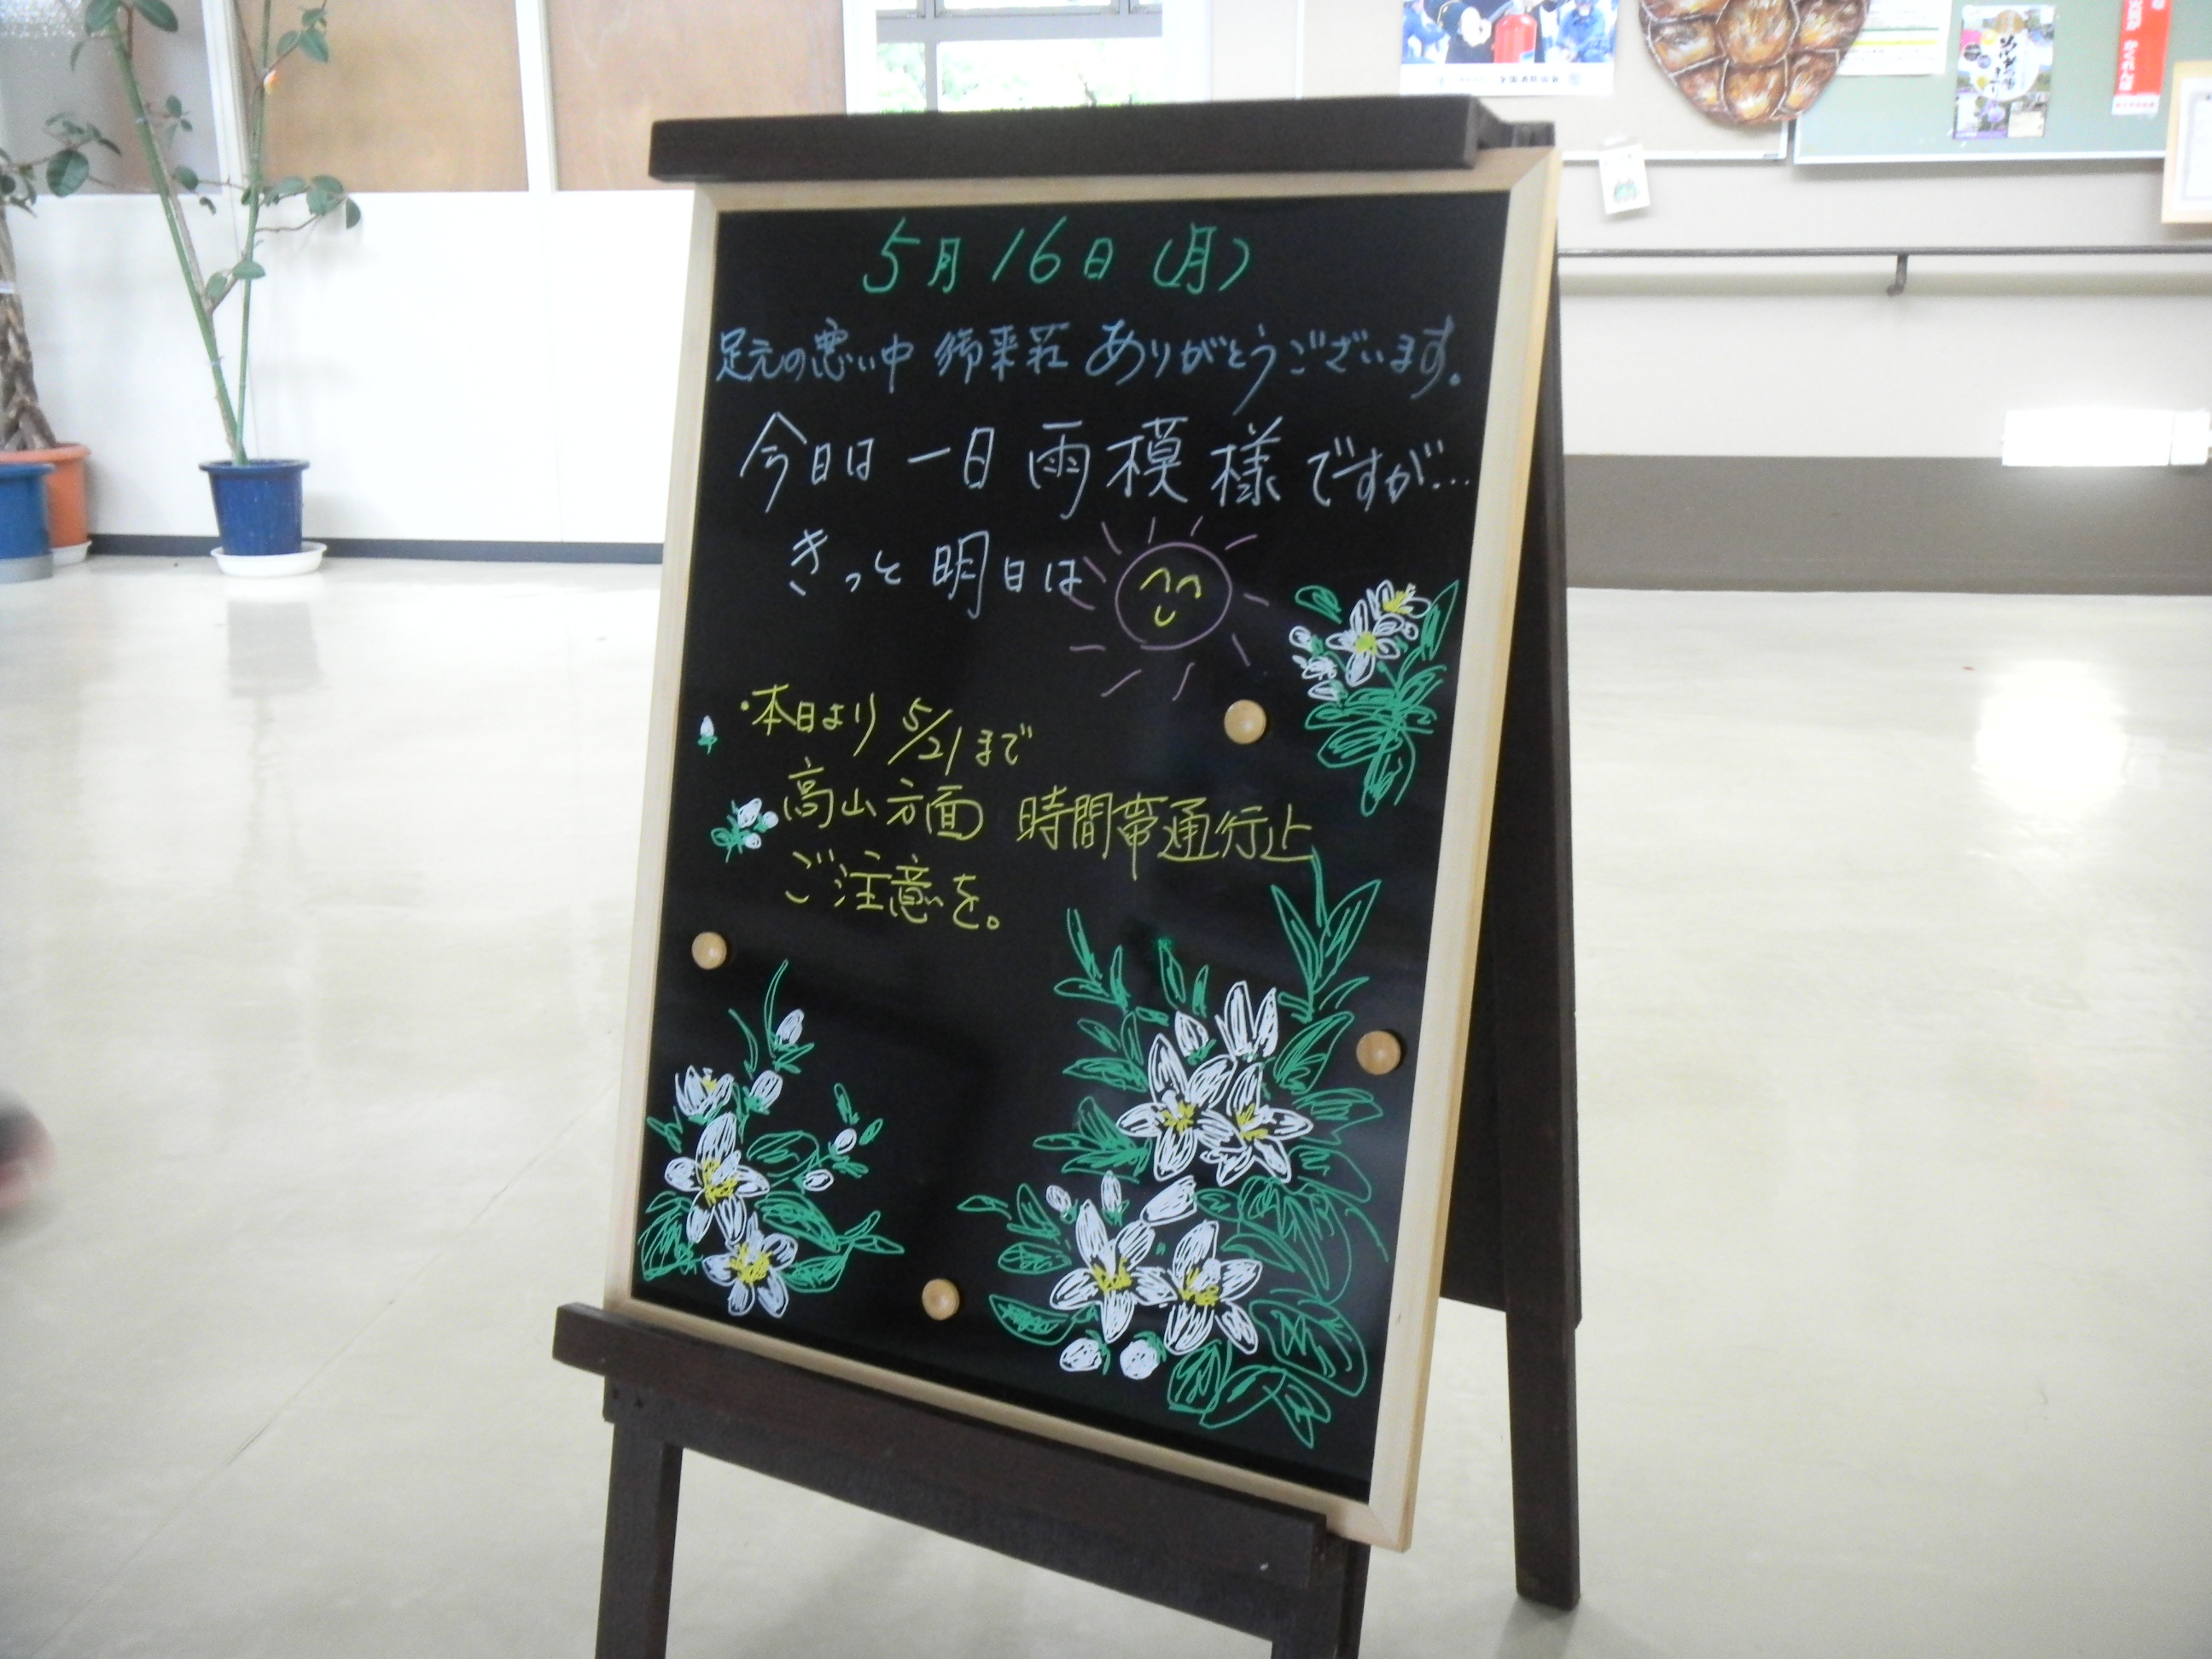 5月16日(月)
足元の悪い中 御来荘 ありがとうございます。
今日は一日雨模様ですが…
きっと明日は
・本日より 5/21まで
高山方面 時間帯通行止
ご注意を。